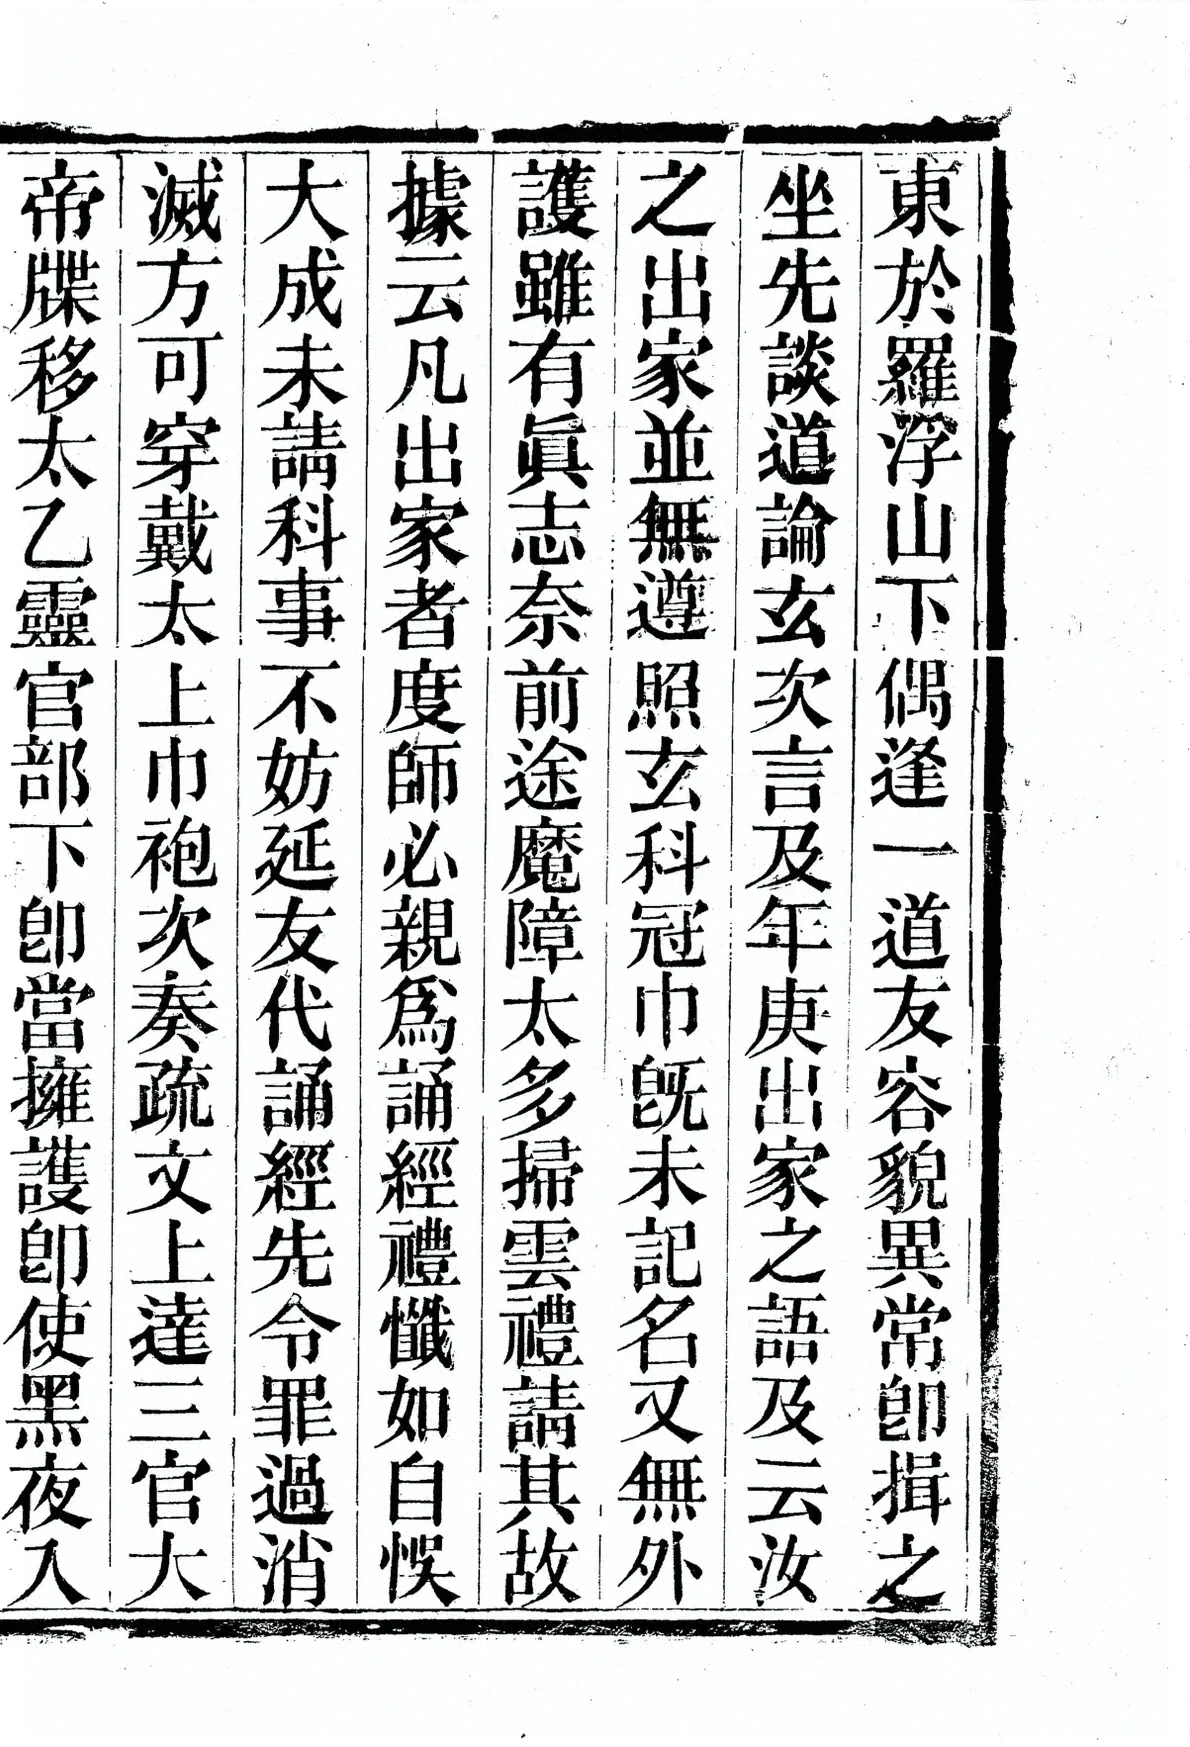 東於羅浮山下偶逢一道友容貌異常卽揖之
坐先談道論玄次言及年庚出家之語及云汝
之出家並無遵照玄科冠巾旣未記名又無外
護雖有眞志奈前途魔障太多掃雲禮請其故
據云凡出家者度師必親爲誦經禮懺如自悞
大成未請科事不妨延友代誦經先令罪過消
滅方可穿戴太上巾袍次奏疏文上達三官大
帝牒移太乙靈官部下卽當擁護卽使黑夜入